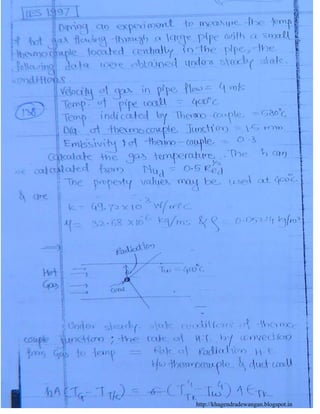 IES 1997
During an experiment to measure the temp
of hot gas flowing through a large pipe with a small
thermocouple located centrally in the pipe, the
following data were obtained under steady state
conditions
Velocity of gas in pipe flow = 4 m/s
Temp. of pipe wall = 400°C
Temp indicated by Thermo-couple =
Dia of thermocouple Junction = 1.5 mm
Emissivity of thermo-couple = 0.3
Calculate the gas temperature. The h can
be calculated from Nu = 0.5 Re
The property values may be used at 400°C
& are
k = 49.72 x 10⁻³ W/m°C
= 32.68 x 10 kg/ms &
Radiation
Hot
Gas
Tw = 400°C
conv
Under steady state conditions of thermo
couple junction; the rate of H.T. by convection
from Gas to temp = Rate of Radiation H.E
b/w thermocouple & duct wall
hA(TG - TT/c) =
http://khagendradewangan.blogspot.in